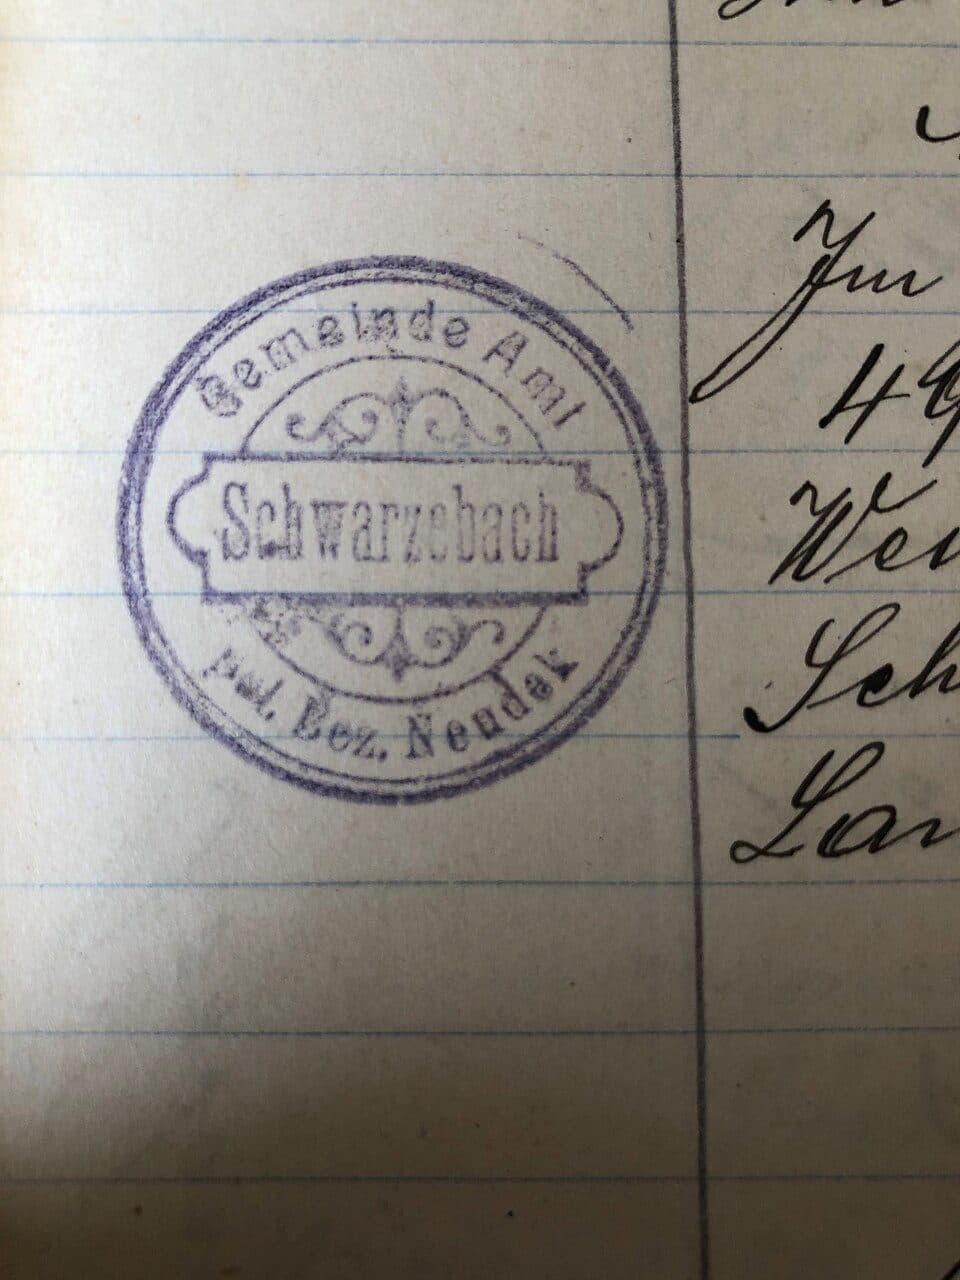 Gemeinde Amt
Schwarzebach
pol. Bez. Neudek
Im
49